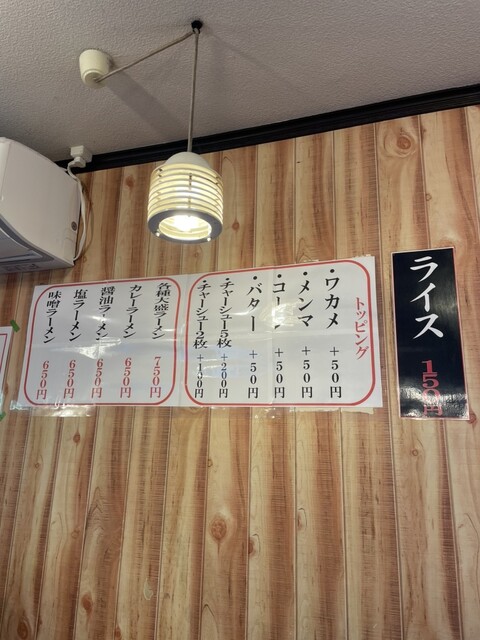 ライス 150円
トッピング
・ワカメ +50円
・メンマ +50円
・コーン +50円
・バター +50円
・チャーシュー5枚 +200円
・チャーシュー2枚 +100円
各種大盛ラーメン 750円
カレーラーメン 650円
醤油ラーメン 650円
塩ラーメン 650円
味噌ラーメン 650円